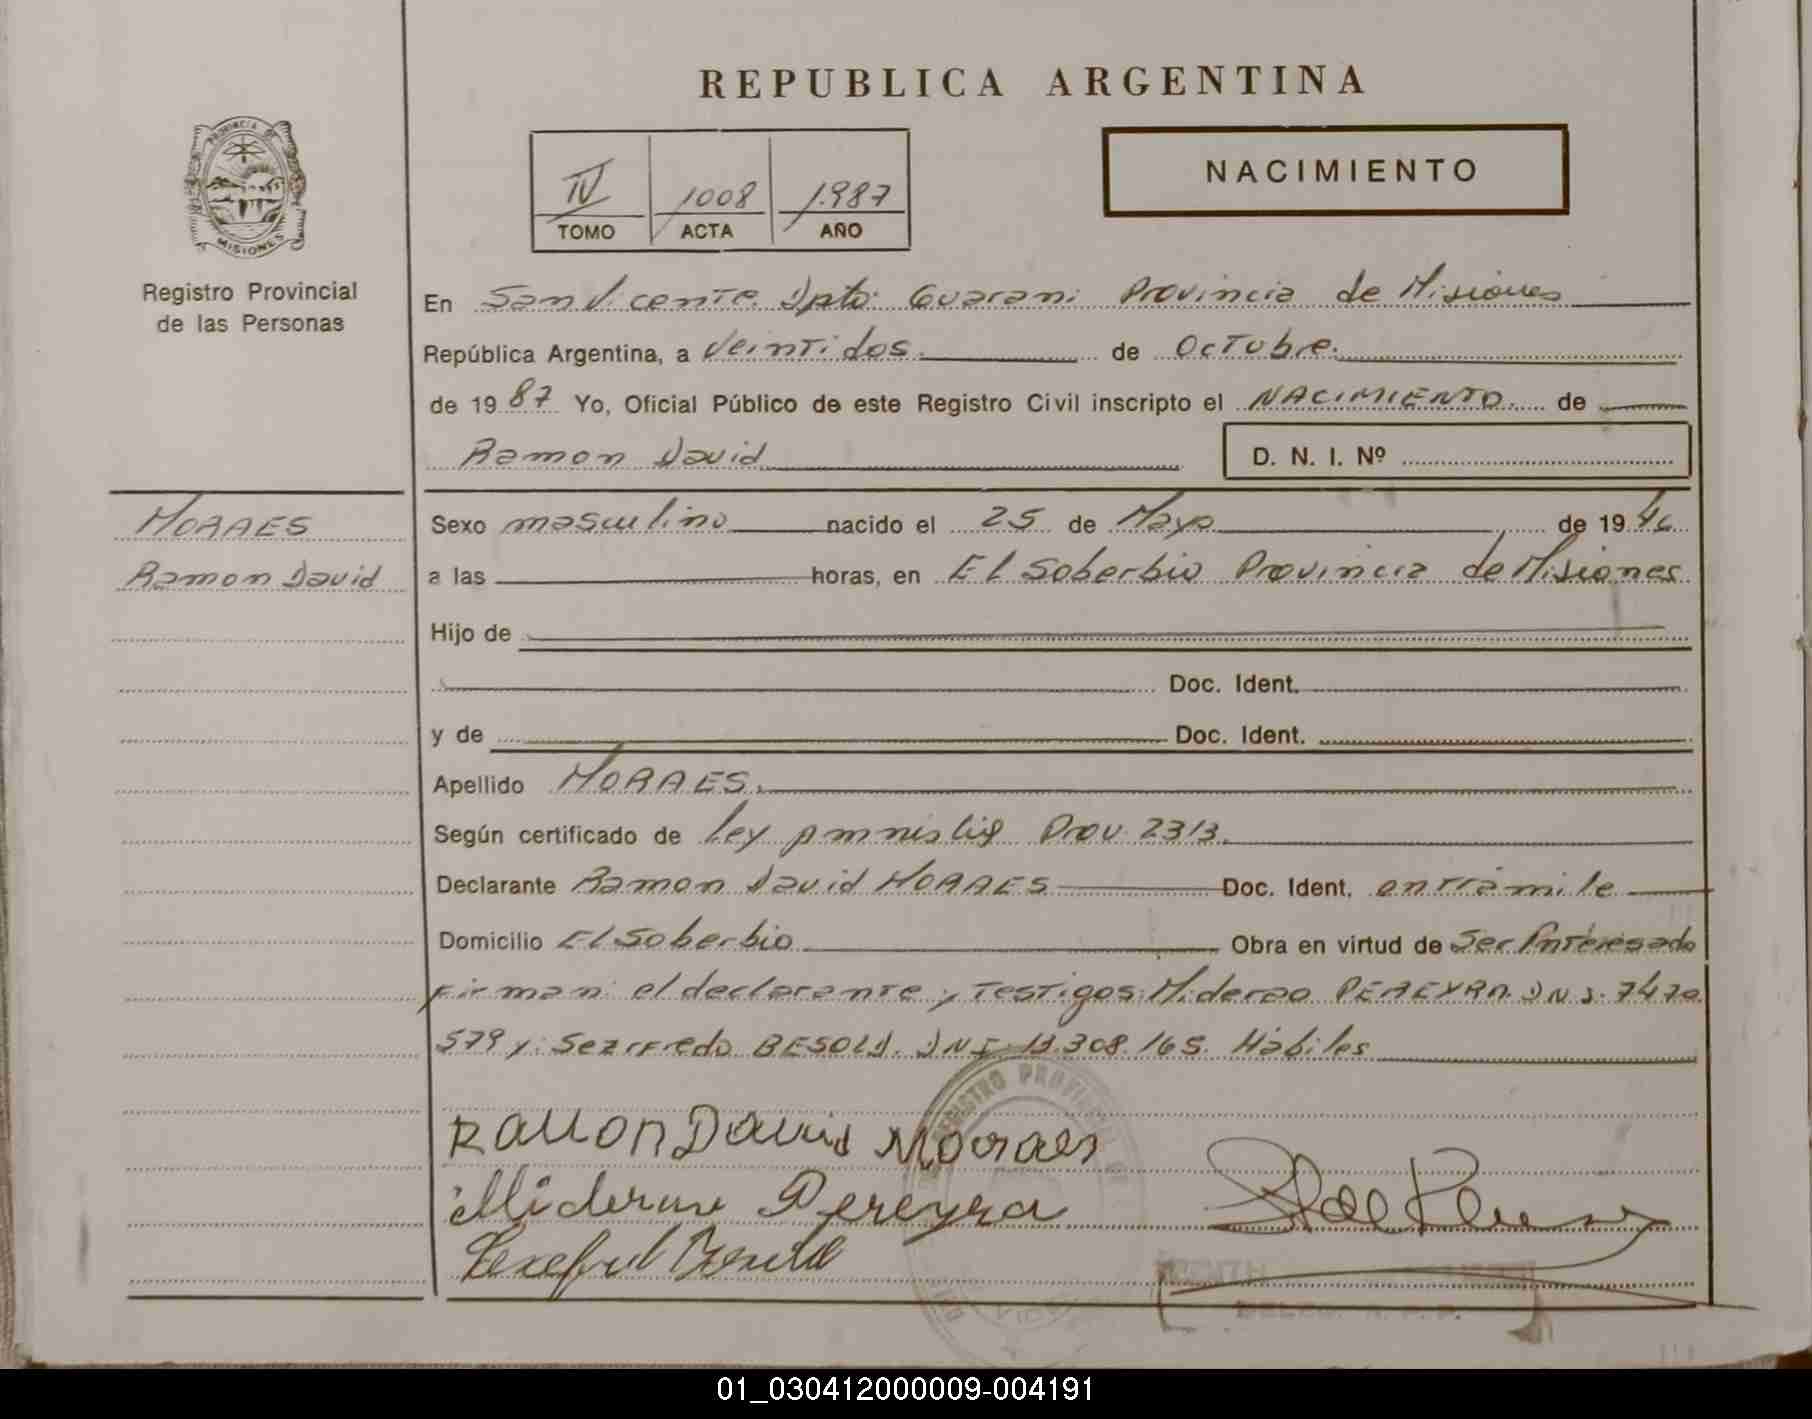 REPUBLICA ARGENTINA
NACIMIENTO
IV 1008 1.987
TOMO ACTA AÑO
PROVINCIA DE
MISIONES
Registro Provincial
de las Personas
En San Vicente Dpto. Guarani Provincia de Misiones
República Argentina, a Veintidos de Octubre.
de 1987 Yo, Oficial Público de este Registro Civil inscripto el NACIMIENTO de
Ramon David D. N. I. Nº
MORAES
Ramon David
Sexo masculino nacido el 25 de Mayo de 1946
a las horas, en El Soberbio Provincia de Misiones
Hijo de
Doc. Ident.
y de Doc. Ident.
Apellido MORAES.
Según certificado de Ley amnistia Prov. 2313.
Declarante Ramon David MORAES Doc. Ident. en tramite
Domicilio El Soberbio Obra en virtud de Ser Interesado
Firman el declarante y Testigos: Miderao PEREYRA D.N.I. 7470
579 y: BESOLD. DNI 13.308.165. Hábiles
Ramon David Moraes
Pereyra
REGISTRO PROVINCIAL DE
01_030412000009-004191